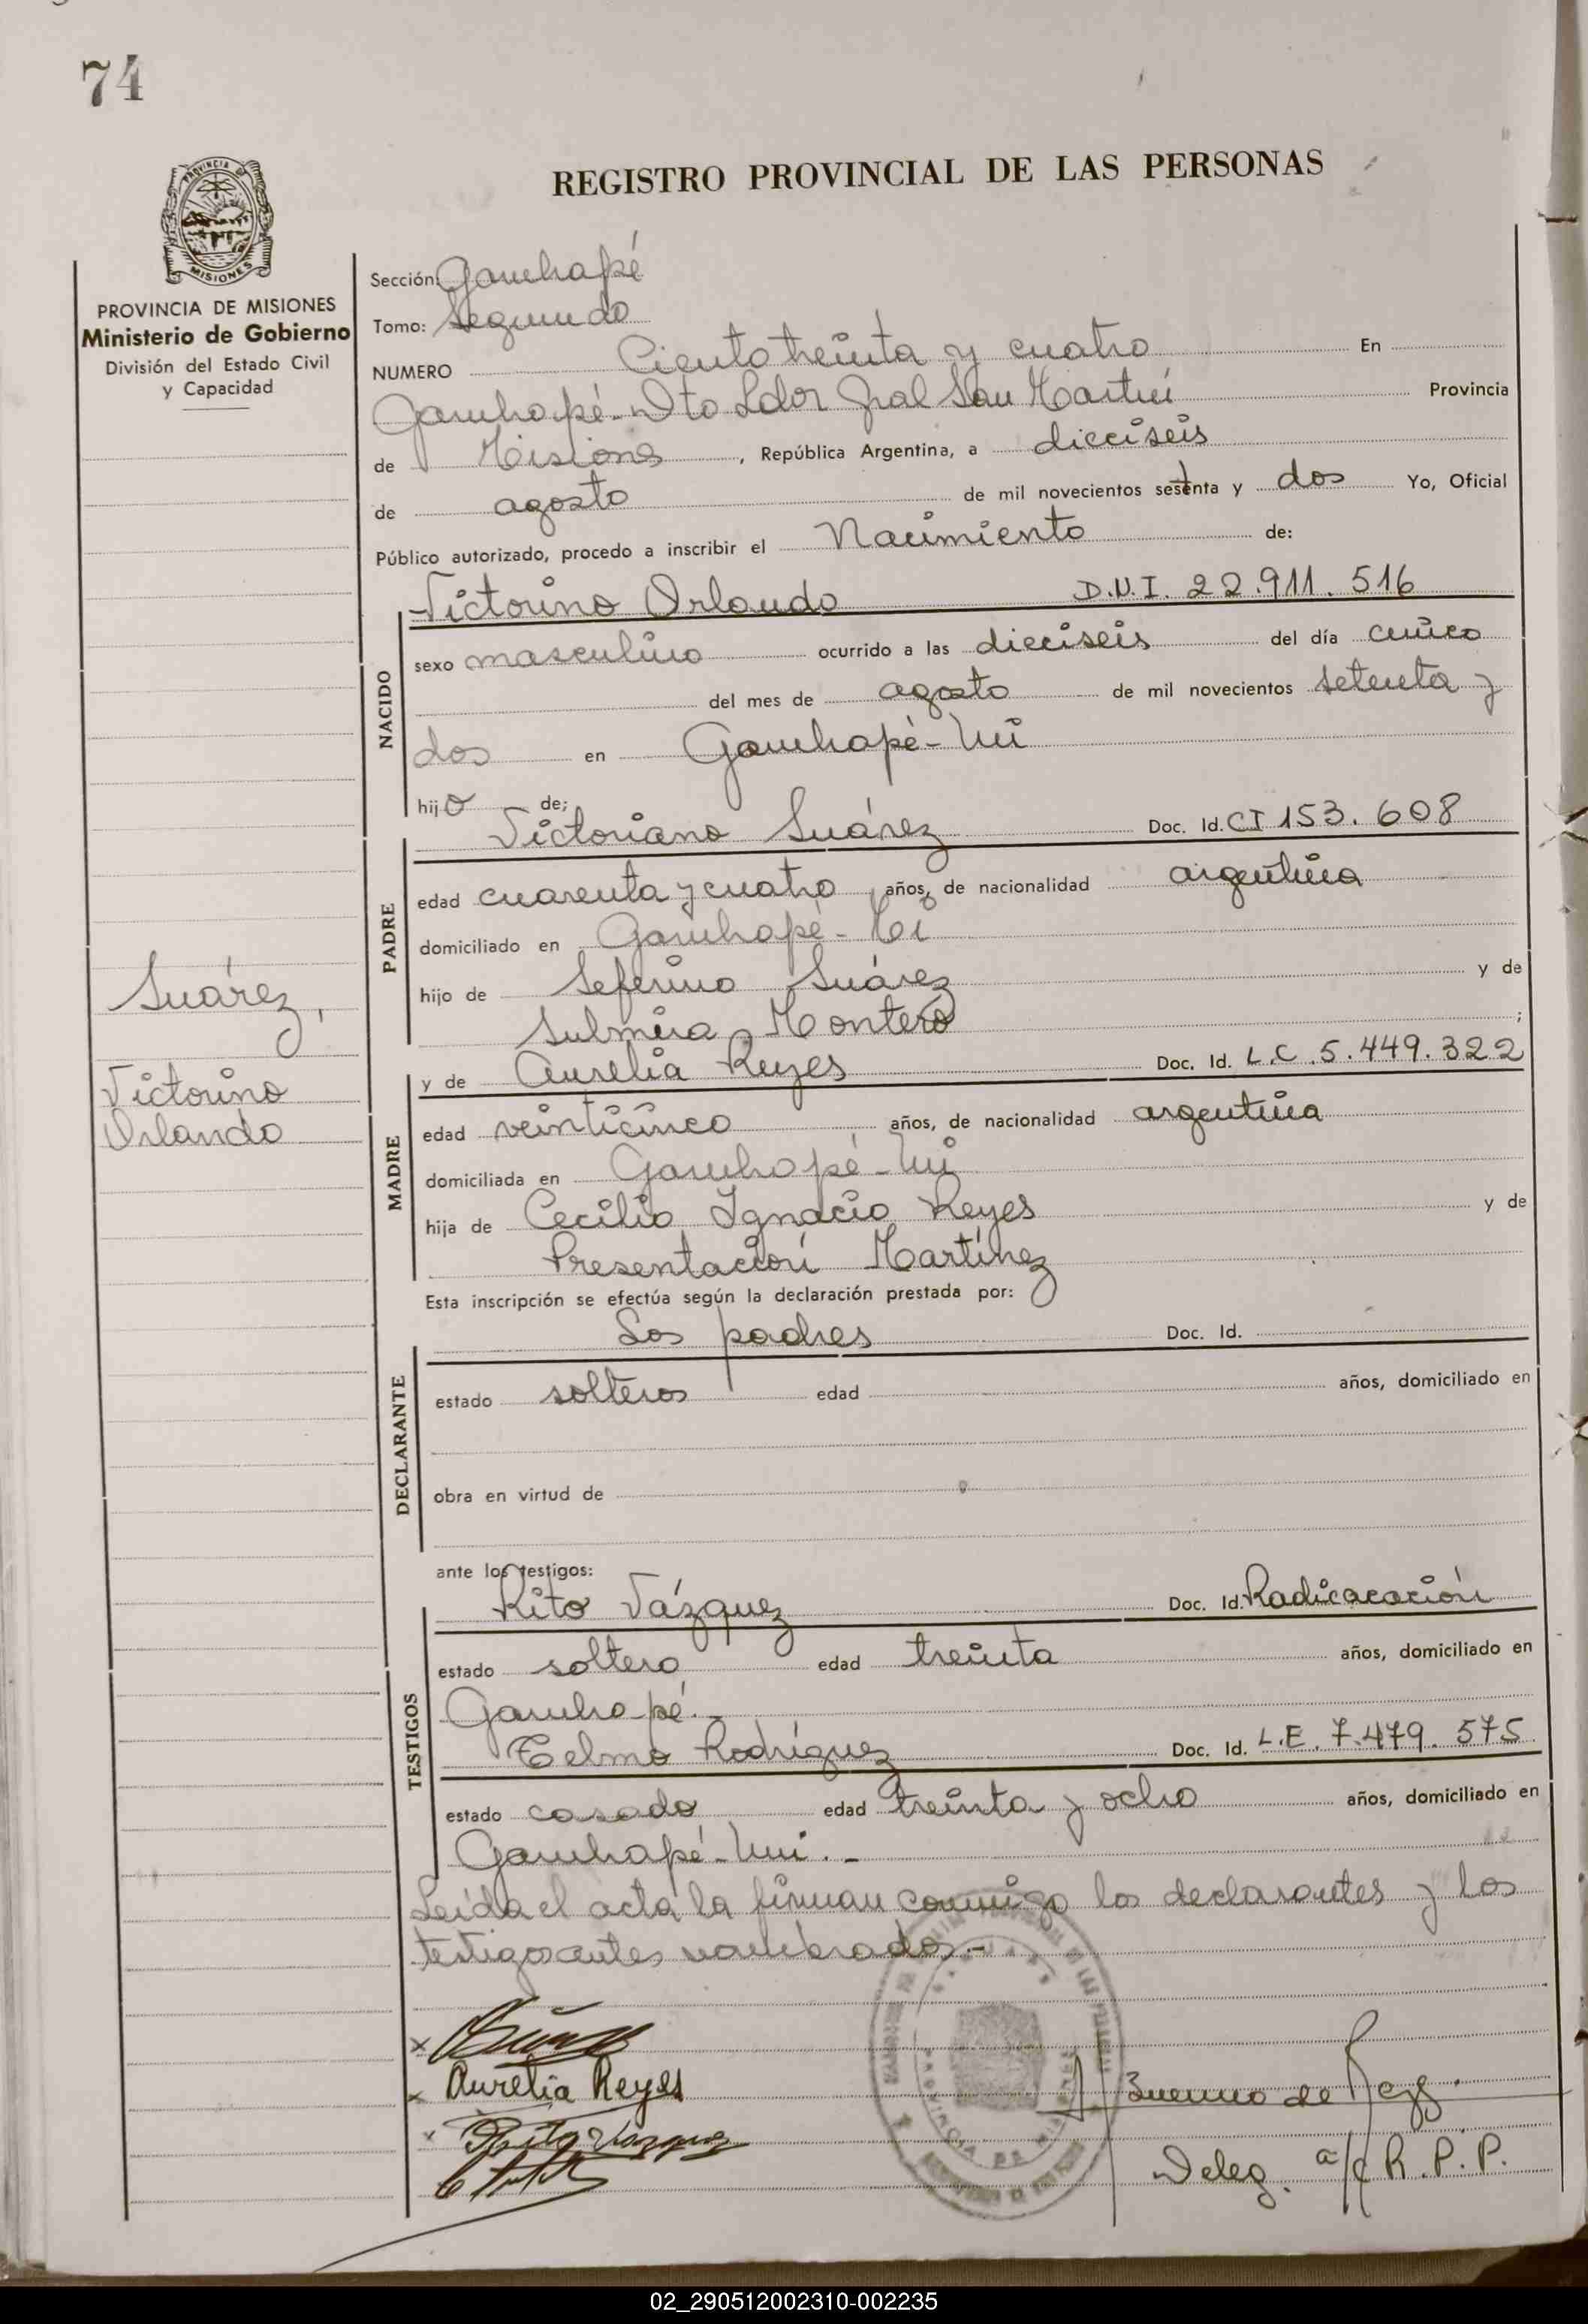 74
REGISTRO PROVINCIAL DE LAS PERSONAS
PROVINCIA
MISIONES
PROVINCIA DE MISIONES
Ministerio de Gobierno
División del Estado Civil
y Capacidad
Suárez,
Victorino
Orlando
Sección: Garuhapé
Tomo: Segundo
NUMERO Ciento treinta y cuatro En
Garuhapé-Dto Ldor Gral San Martín Provincia
de Misiones, República Argentina, a dieciseis
de agosto de mil novecientos setenta y dos Yo, Oficial
Público autorizado, procedo a inscribir el Nacimiento de:
Victorino Orlando D.N.I. 22.911.516
NACIDO
sexo masculino ocurrido a las dieciseis del día cinco
del mes de agosto de mil novecientos setenta y
dos en Garuhapé-Mi
hijo de;
Victoriano Suárez Doc. Id. CI 153.608
PADRE
edad cuarenta y cuatro años, de nacionalidad argentina
domiciliado en Garuhapé-Mi
hijo de Seferino Suárez y de
Sulmira Montero;
y de Aurelia Reyes Doc. Id. L.C. 5.449.322
MADRE
edad veinticinco años, de nacionalidad argentina
domiciliada en Garuhapé-Mi
hija de Cecilio Ignacio Reyes y de
Presentación Martínez
Esta inscripción se efectúa según la declaración prestada por:
Los padres Doc. Id.
DECLARANTE
estado solteros edad años, domiciliado en
obra en virtud de
ante los testigos:
Rito Vázquez Doc. Id. Radicacación
TESTIGOS
estado soltero edad treinta años, domiciliado en
Garuhapé.-
Telmo Rodríguez Doc. Id. L.E. 7.479.575
estado casado edad treinta y ocho años, domiciliado en
Garuhapé-Mi.-
Leída el acta la firman conmigo los declarantes y los
testigos antes nombrados.-
x
x Aurelia Reyes
x Rito Vazquez
Deleg. a/c R.P.P.
PROVINCIA DE MISIONES
02_290512002310-002235